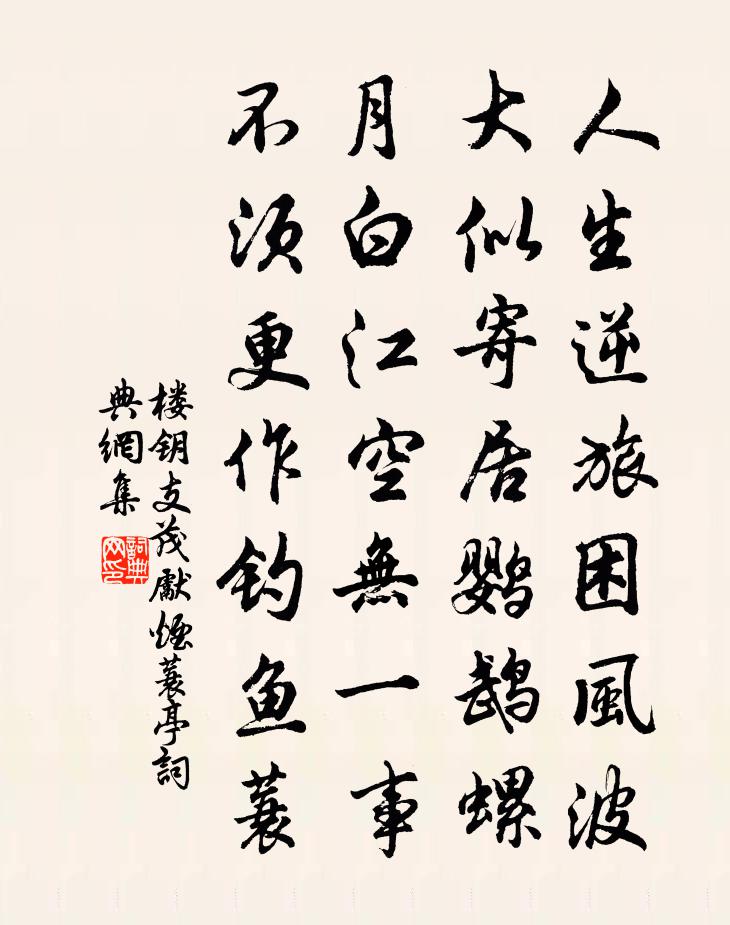 人生逆旅困風波
大似寄居鹦鵡螺
月白江空無一事
不須更作钓鱼蓑
楼钥支茂獻煙蓑亭詞
典網集
詞典
网集